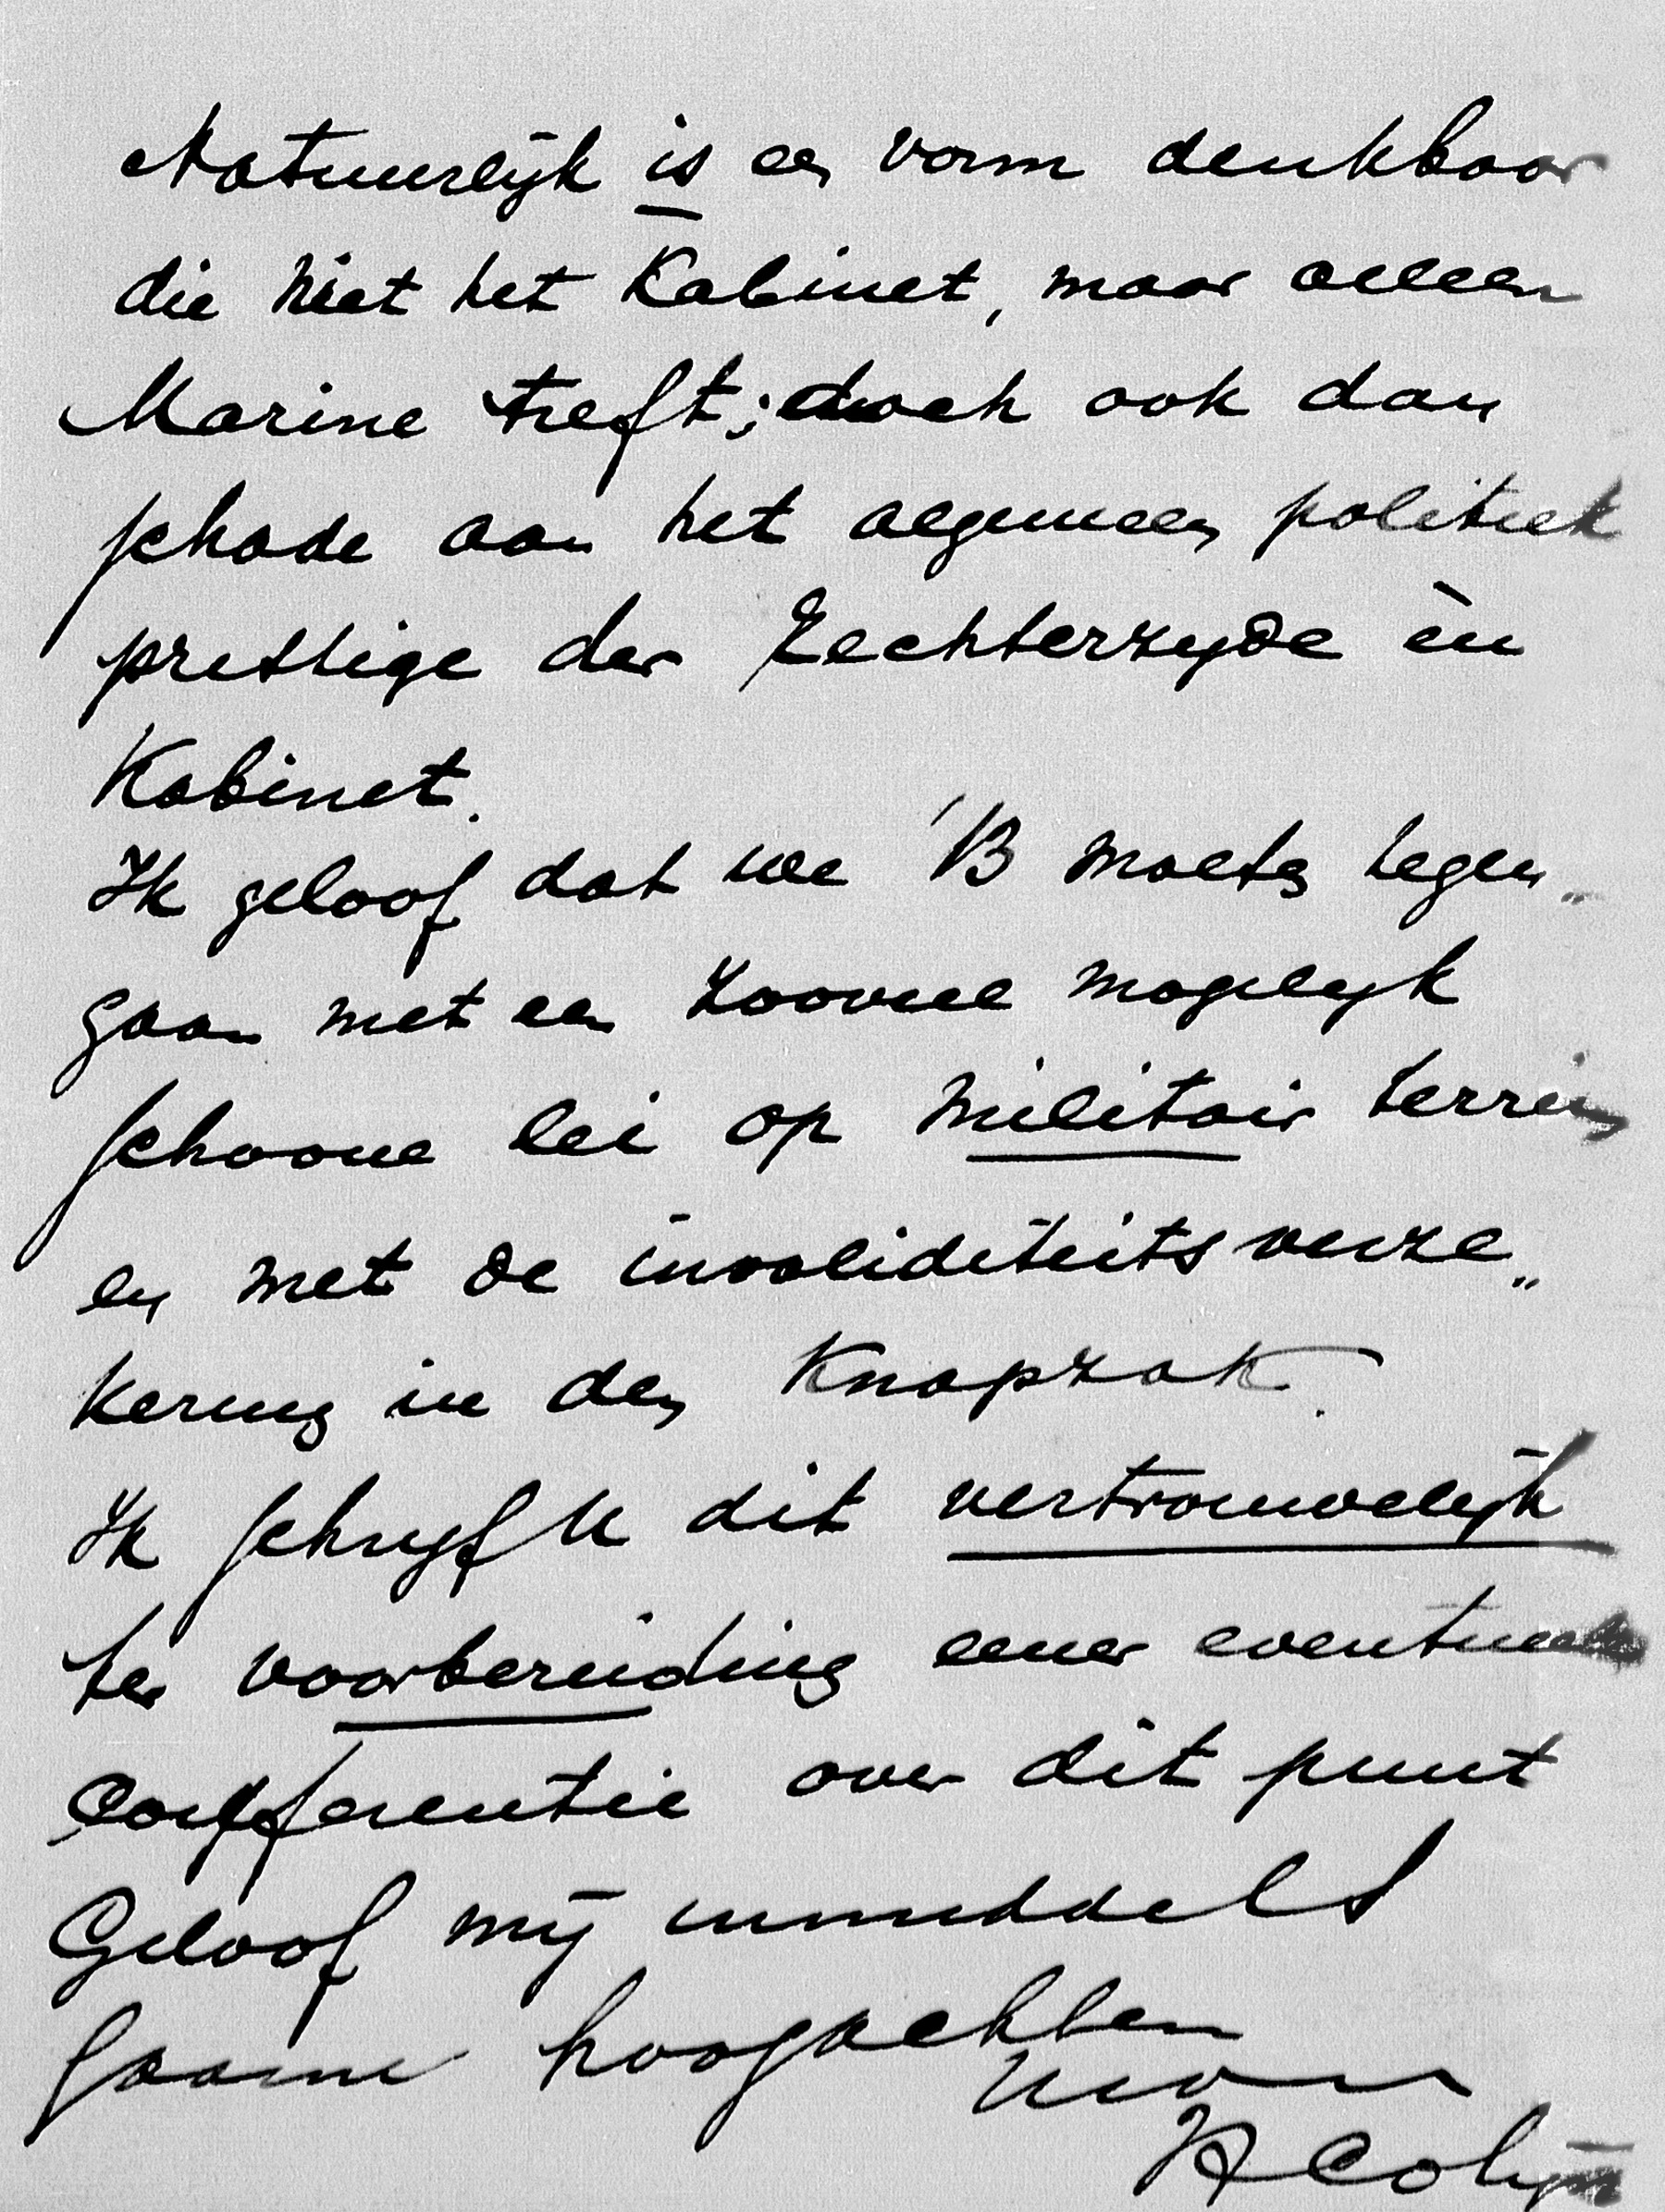 Natuurlijk is een vorm denkbaar
die niet het Kabinet, maar alleen
Marine treft; doch ook dan
schade aan het algemeen politiek
prestige der Rechterzijde èn
Kabinet.
Ik geloof dat we '13 moeten tegen„
gaan met een zooveel mogelijk
schoone lei op militair terrein
en met de invaliditeitsverze„
kering in den Knapzak.
Ik schrijf U dit vertrouwelijk
ter voorbereiding eener eventueele
Conferentie over dit punt
Geloof mij inmiddels
gaarne hoogachten
HColijn